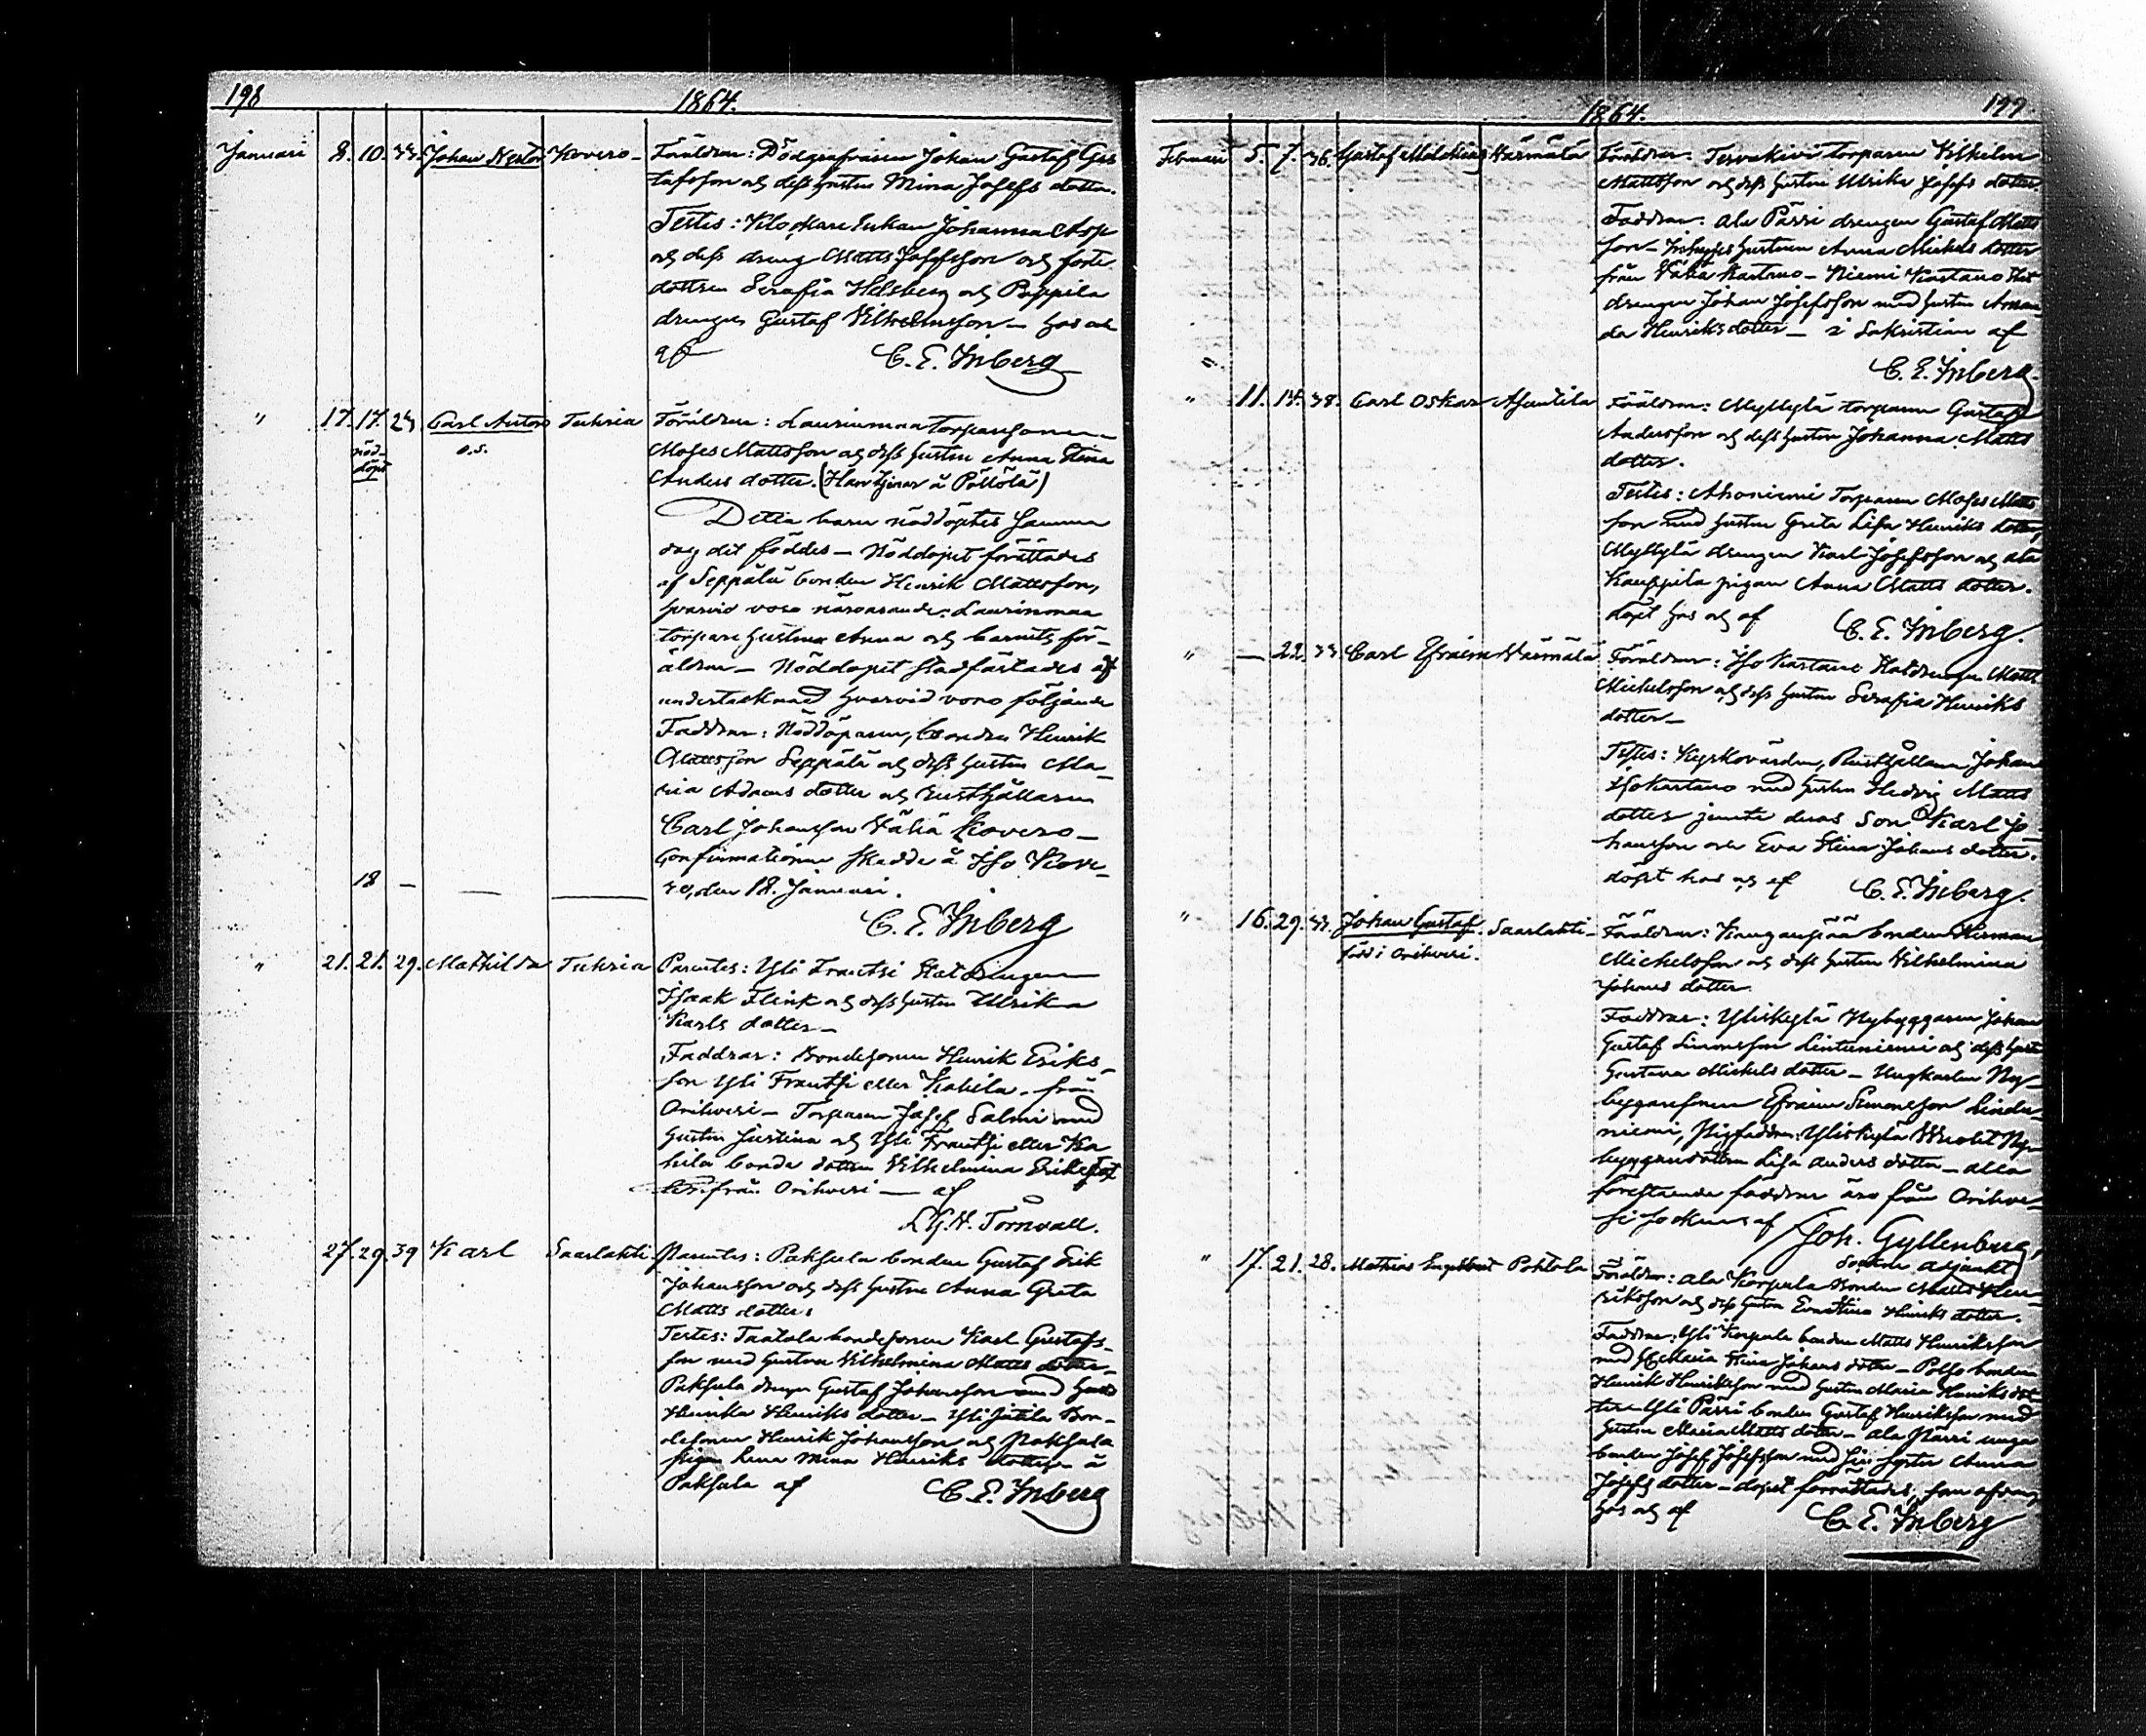 198
1864.
Januari 8. 10. 33. Johan Nestor Kovero- Föräldrar: Dödgräfvaren Johan Gustaf Gus
tafsson och dess hustru Mina Josefs dotter.
Testes: Klockare Enkan Johanna Asp
och dess dreng Matts Josefsson och foste
dottren Serafia Helsberg och Pappila
drengen Gustaf Vilhelmsson – hos och
af C. E. Inberg
" 17. 17. 24. Carl Anton Tuhria Föräldrar: Laurinmaa torparsonen
nöd- o.s. Moses Mattsson och dess hustru Anna Stina
döpt Anders dotter. (Han tjenar å Pöllölä)
Detta barn nöddöptes samma
dag det föddes – Nöddopet förättades
af Seppälä bonden Henrik Mattsson,
hvarvid voro närvarande: Laurinmaa
torpare hustrun Anna och barnets för-
äldrar – Nöddopet stadfästades af
undertecknad hvarvid voro följande
Faddrar: Nöddöparen, bonden Henrik
Mattsson Seppälä och dess hustru Ma-
ria Adams dotter och Rusthållaren
Carl Johansson Vähä Kovero –
Confirmationen skedde å Iso Kove-
18 – — — ro, den 18. Januari.
C. E. Inberg
" 21. 21. 29. Mathilda Tuhria Parentes: Yli Frantsi Statdrengen
Isaak Flink och dess hustru Ulrika
Karls dotter –
Faddrar: Bondesonen Henrik Eriks-
son Yli Frantsi eller Kahila – från
Orihvesi – Torparen Josef Salmi med
hustru Justina och Yli Frantsi eller Ka
hila bonde dottren Vilhelmina Eriks dot
ter från Orihvesi — af
L. G. N. Törnvall.
27. 29. 39 Karl Saarlahti Parentes: Paksula bonden Gustaf Erik
Johansson och dess hustru Anna Greta
Matts dotter.
Testes: Taatala bondesonen Karl Gustafs-
son med hustrun Vilhelmina Matts dotter
Paksula drengen Gustaf Johansson med hustru
Henrika Henriks dotter – Yli Jutila Bon-
desonen Henrik Johansson och Paksula
pigan Lena Mina Henriks dotter – å
Paksula af C. E. Inberg
1864. 199
Februari 5. 7. 36. Gustaf Melchior Wärmälä Föräldrar: Tervakivi torparen Vilhelm
Mattsson och dess hustru Ulrika Josefs dotter
Faddrar: Ala Pärri drengen Gustaf Matts
son – hustrun Anna Michels dotter
från Vähä Kartano – Niemi Kartano Stat
drengen Johan Josefsson med hustru Aman
da Henriksdotter – i Sakristian af
" C. E. Inberg.
" 11. 14. 38. Carl Oskar Asuntila Föräldrar: Myllylä torparen Gustaf
Andersson och dess hustru Johanna Matts
dotter.
Testes: Ahoniemi Torparen Moses Matts
son med hustru Greta Lisa Henriks dotter,
Myllylä drengen Karl Josefsson och ala
Kauppila pigan Anna Matts dotter.
döpt hos och af C. E. Inberg.
" — 22. 33. Carl Efraim Wärmälä Föräldrar: Iso Kartano Statdrengen Matts
Michelsson och dess hustru Serafia Henriks
dotter –
Testes: Kyrkovärden, Rusthållaren Johan
Isokartano med hustru Hedvig Matts
dotter jemte deras son Karl Jo-
hansson och Eva Stina Johans dotter.
döpt hos och af C. E. Inberg.
" 16. 29. 33. Johan Gustaf. Saarlahti- Föräldrar: Kangaspää bonden Herman
född i Orihvesi. Michelsson och dess hustru Vilhelmina
Johans dotter.
Faddrar: Yliskylä Nybyggaren Johan
Gustaf Simonsson Lintuniemi och dess hustru
Gustava Michels dotter – Ungkarlen Ny-
byggaresonen Efraim Simonsson Lindu-
niemi, Pigfaddrar: Yliskylä Nybyggaredottren Lisa Anders dotter – alla
förestående faddrar äro från Orihve-
si sockens af Joh. Gyllenberg,
Sockne adjunkt
" 17. 21. 28. Mathias Engelbert Pohtola Föräldrar: ala Korpula Bonden Matts Hen-
riksson och dess hustru Eva Stina Henriks dotter.
Faddrar: Yli Korpula bonden Matts Henriksson
med H. Maria Stina Johans dotter – bonden
Henrik Henriksson med hustru Maria Henriks dot
ter – Yli Pärri bonden Gustaf Henriksson med
hustru Maria Matts dotter – ala Pärri unga
bonden Josef Josefsson med sin syster Anna
Josefs dotter – dopet förrättades, som ofvan,
hos och af C. E. Inberg